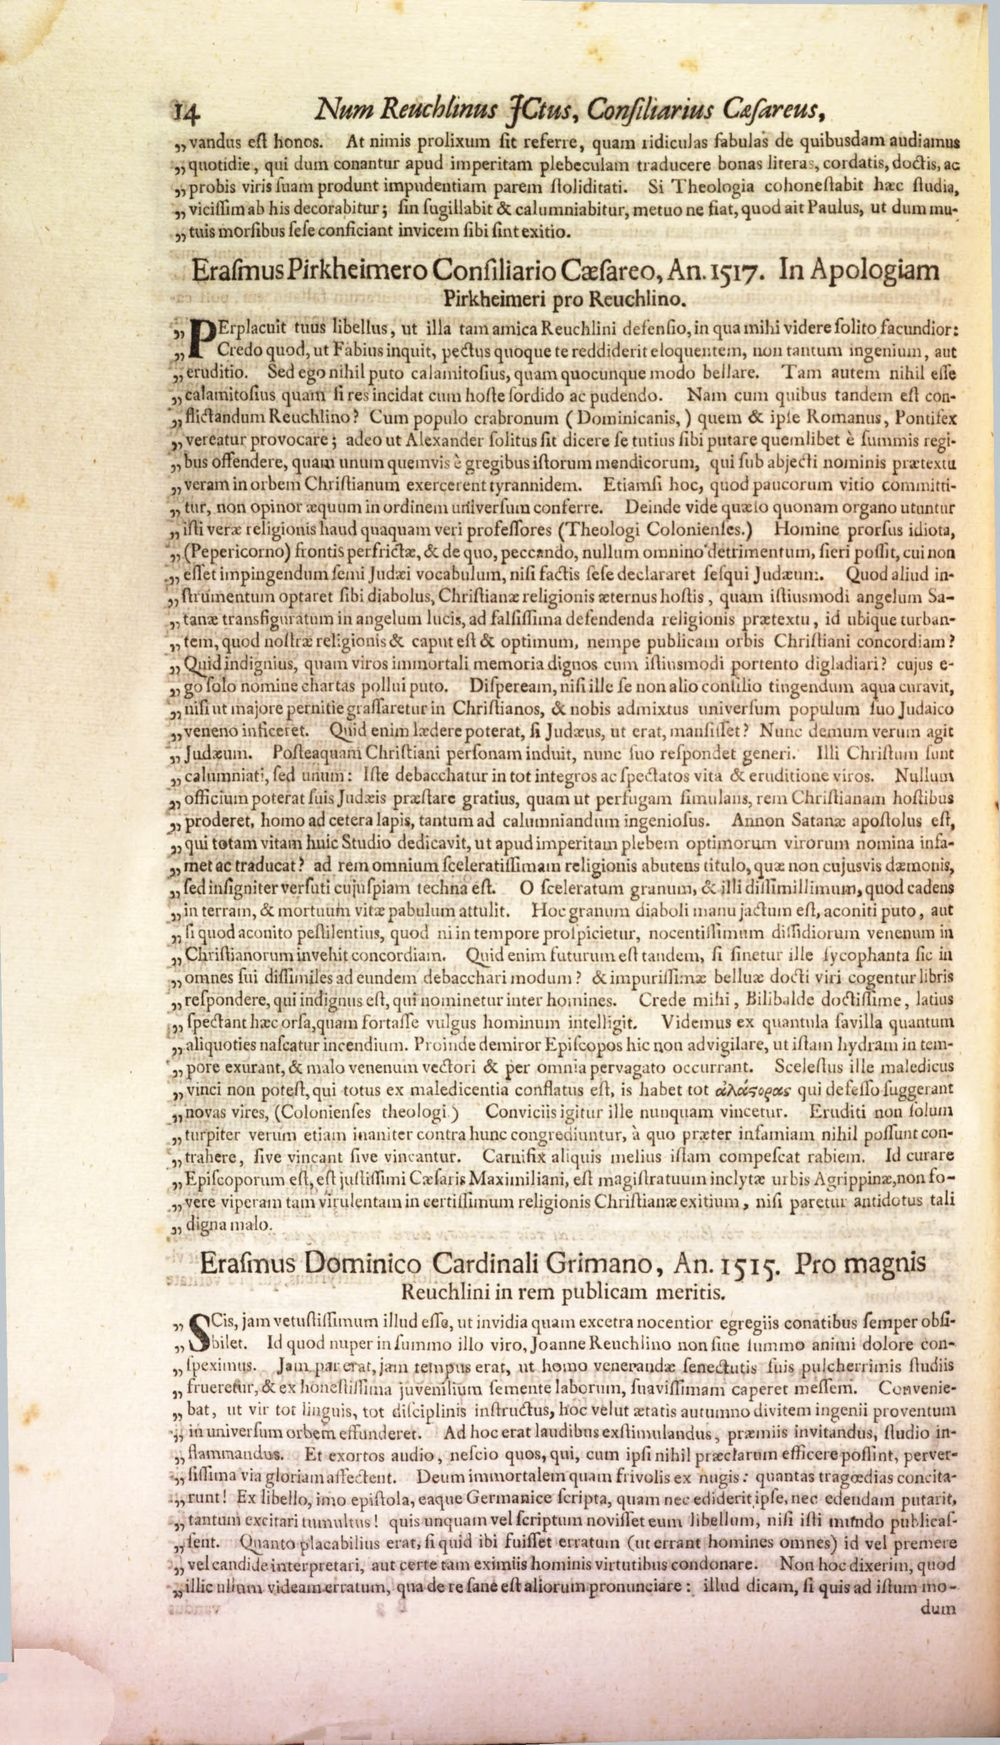 14 Num Reuchlinus JCtus, Consiliarius Cæsareus,
„vandus est honos. At nimis prolixum sit referre, quam ridiculas fabulas de quibusdam audiamus
„quotidie, qui dum conantur apud imperitam plebeculam traducere bonas literas, cordatis, doctis, ac
„probis viris suam produnt impudentiam parem stoliditati. Si Theologia cohonestabit hæc studia,
„vicissim ab his decorabitur; sin sugillabit & calumniabitur, metuo ne fiat, quod ait Paulus, ut dum mu-
„tuis morsibus sese conficiant invicem sibi sint exitio.
Erasmus Pirkheimero Consiliario Cæsareo, An. 1517. In Apologiam
Pirkheimeri pro Reuchlino.
„PErplacuit tuus libellus, ut illa tam amica Reuchlini defensio, in qua mihi videre solito facundior:
„Credo quod, ut Fabius inquit, pectus quoque te reddiderit eloquentem, non tantum ingenium, aut
„eruditio. Sed ego nihil puto calamitosius, quam quocunque modo bellare. Tam autem nihil esse
„calamitosius quam si res incidat cum hoste sordido ac pudendo. Nam cum quibus tandem est con-
„flictandum Reuchlino? Cum populo crabronum (Dominicanis,) quem & ipse Romanus, Pontifex
„vereatur provocare; adeo ut Alexander solitus sit dicere se tutius sibi putare quemlibet è summis regi-
„bus offendere, quam unum quemvis è gregibus istorum mendicorum, qui sub abjecti nominis prætextu
„veram in orbem Christianum exercerent tyrannidem. Etiamsi hoc, quod paucorum vitio committi-
„tur, non opinor æquum in ordinem universum conferre. Deinde vide quæso quonam organo utuntur
„isti veræ religionis haud quaquam veri professores (Theologi Colonienses.) Homine prorsus idiota,
„(Pepericorno) frontis perfrictæ, & de quo, peccando, nullum omnino detrimentum, fieri possit, cui non
„esset impingendum semi Judæi vocabulum, nisi factis sese declararet sesqui Judæum. Quod aliud in-
„strumentum optaret sibi diabolus, Christianæ religionis æternus hostis, quam istiusmodi angelum Sa-
„tanæ transfiguratum in angelum lucis, ad falsissima defendenda religionis prætextu, id ubique turban-
„tem, quod nostræ religionis & caput est & optimum, nempe publicam orbis Christiani concordiam?
„Quid indignius, quam viros immortali memoria dignos cum istiusmodi portento digladiari? cujus e-
„go solo nomine chartas pollui puto. Dispeream, nisi ille se non alio consilio tingendum aqua curavit,
„nisi ut majore pernitie grassaretur in Christianos, & nobis admixtus universum populum suo Judaico
„veneno inficeret. Quid enim lædere poterat, si Judæus, ut erat, mansisset? Nunc demum verum agit
„Judæum. Posteaquam Christiani personam induit, nunc suo respondet generi. Illi Christum sunt
„calumniati, sed unum: Iste debacchatur in tot integros ac spectatos vita & eruditione viros. Nullum
„officium poterat suis Judæis præstare gratius, quam ut perfugam simulans, rem Christianam hostibus
„proderet, homo ad cetera lapis, tantum ad calumniandum ingeniosus. Annon Satanæ apostolus est,
„qui totam vitam huic Studio dedicavit, ut apud imperitam plebem optimorum virorum nomina infa-
„met ac traducat? ad rem omnium sceleratissimam religionis abutens titulo, quæ non cujusvis dæmonis,
„sed insigniter versuti cujuspiam techna est. O sceleratum granum, & illi dissimillimum, quod cadens
„in terram, & mortuum vitæ pabulum attulit. Hoc granum diaboli manu jactum est, aconiti puto, aut
„si quod aconito pestilentius, quod ni in tempore prospicietur, nocentissimum dissidiorum venenum in
„Christianorum invehit concordiam. Quid enim futurum est tandem, si sinetur ille sycophanta sic in
„omnes sui dissimiles ad eundem debacchari modum? & impurissimæ belluæ docti viri cogentur libris
„respondere, qui indignus est, qui nominetur inter homines. Crede mihi, Bilibalde doctissime, latius
„spectant hæc orsa, quam fortasse vulgus hominum intelligit. Videmus ex quantula favilla quantum
„aliquoties nascatur incendium. Proinde demiror Episcopos hic non advigilare, ut istam hydram in tem-
„pore exurant, & malo venenum vectori & per omnia pervagato occurrant. Scelestus ille maledicus
„vinci non potest, qui totus ex maledicentia conflatus est, is habet tot ἀλάςορας qui defesso suggerant
„novas vires, (Colonienses theologi) Conviciis igitur ille nunquam vincetur. Eruditi non solum
„turpiter verum etiam inaniter contra hunc congrediuntur, à quo præter infamiam nihil possunt con-
„trahere, sive vincant sive vincantur. Carnifix aliquis melius istam compescat rabiem. Id curare
„Episcoporum est, est justissimi Cæsaris Maximiliani, est magistratuum inclytæ urbis Agrippinæ, non fo-
„vere viperam tam virulentam in certissimum religionis Christianæ exitium, nisi paretur antidotus tali
„digna malo.
Erasmus Dominico Cardinali Grimano, An. 1515. Pro magnis
Reuchlini in rem publicam meritis.
„SCis, jam vetustissimum illud esse, ut invidia quam excetra nocentior egregiis conatibus semper obsi-
„bilet. Id quod nuper in summo illo viro, Joanne Reuchlino non sine summo animi dolore con-
„speximus. Jam par erat, jam tempus erat, ut homo venerandæ senectutis suis pulcherrimis studiis
„frueretur, & ex honestissima juvenilium semente laborum, suavissimam caperet messem. Convenie-
„bat, ut vir tot linguis, tot disciplinis instructus, hoc velut ætatis autumno divitem ingenii proventum
„in universum orbem effunderet. Ad hoc erat laudibus exstimulandus, præmiis invitandus, studio in-
„flammandus. Et exortos audio, nescio quos, qui, cum ipsi nihil præclarum efficere possint, perver-
„sissima via gloriam affectent. Deum immortalem quam frivolis ex nugis: quantas tragœdias concita-
„runt! Ex libello, imo epistola, eaque Germanice scripta, quam nec ediderit ipse, nec edendam putarit,
„tantum excitari tumultus! quis unquam vel scriptum novisset eum libellum, nisi isti mundo publicas-
„sent. Quanto placabilius erat, si quid ibi fuisset erratum (ut errant homines omnes) id vel premere
„vel candide interpretari, aut certe tam eximiis hominis virtutibus condonare. Non hoc dixerim, quod
„illic ullum videam erratum, qua de re sane est aliorum pronunciare: illud dicam, si quis ad istum mo-
dum